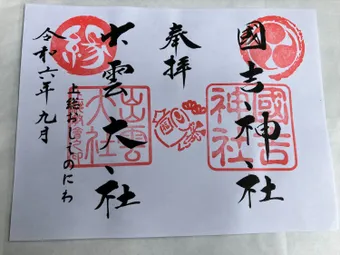 國吉神社
奉拝
出雲大社
上総おしてのにわ
令和六年九月
國吉神社
出雲大社
縁